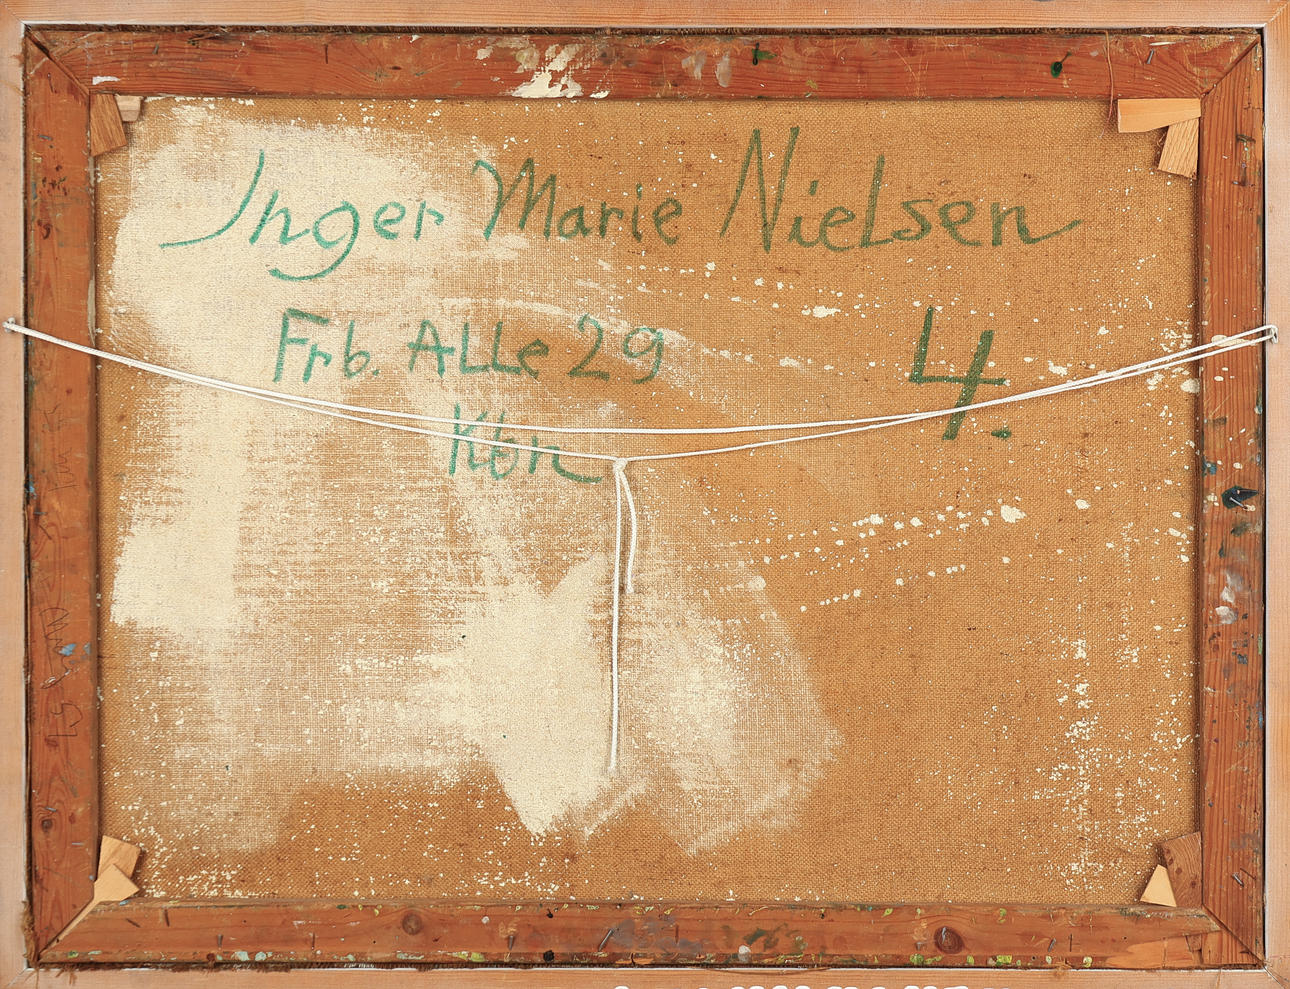 Inger Marie Nielsen
Frb. ALLe 29
4.
Kbn